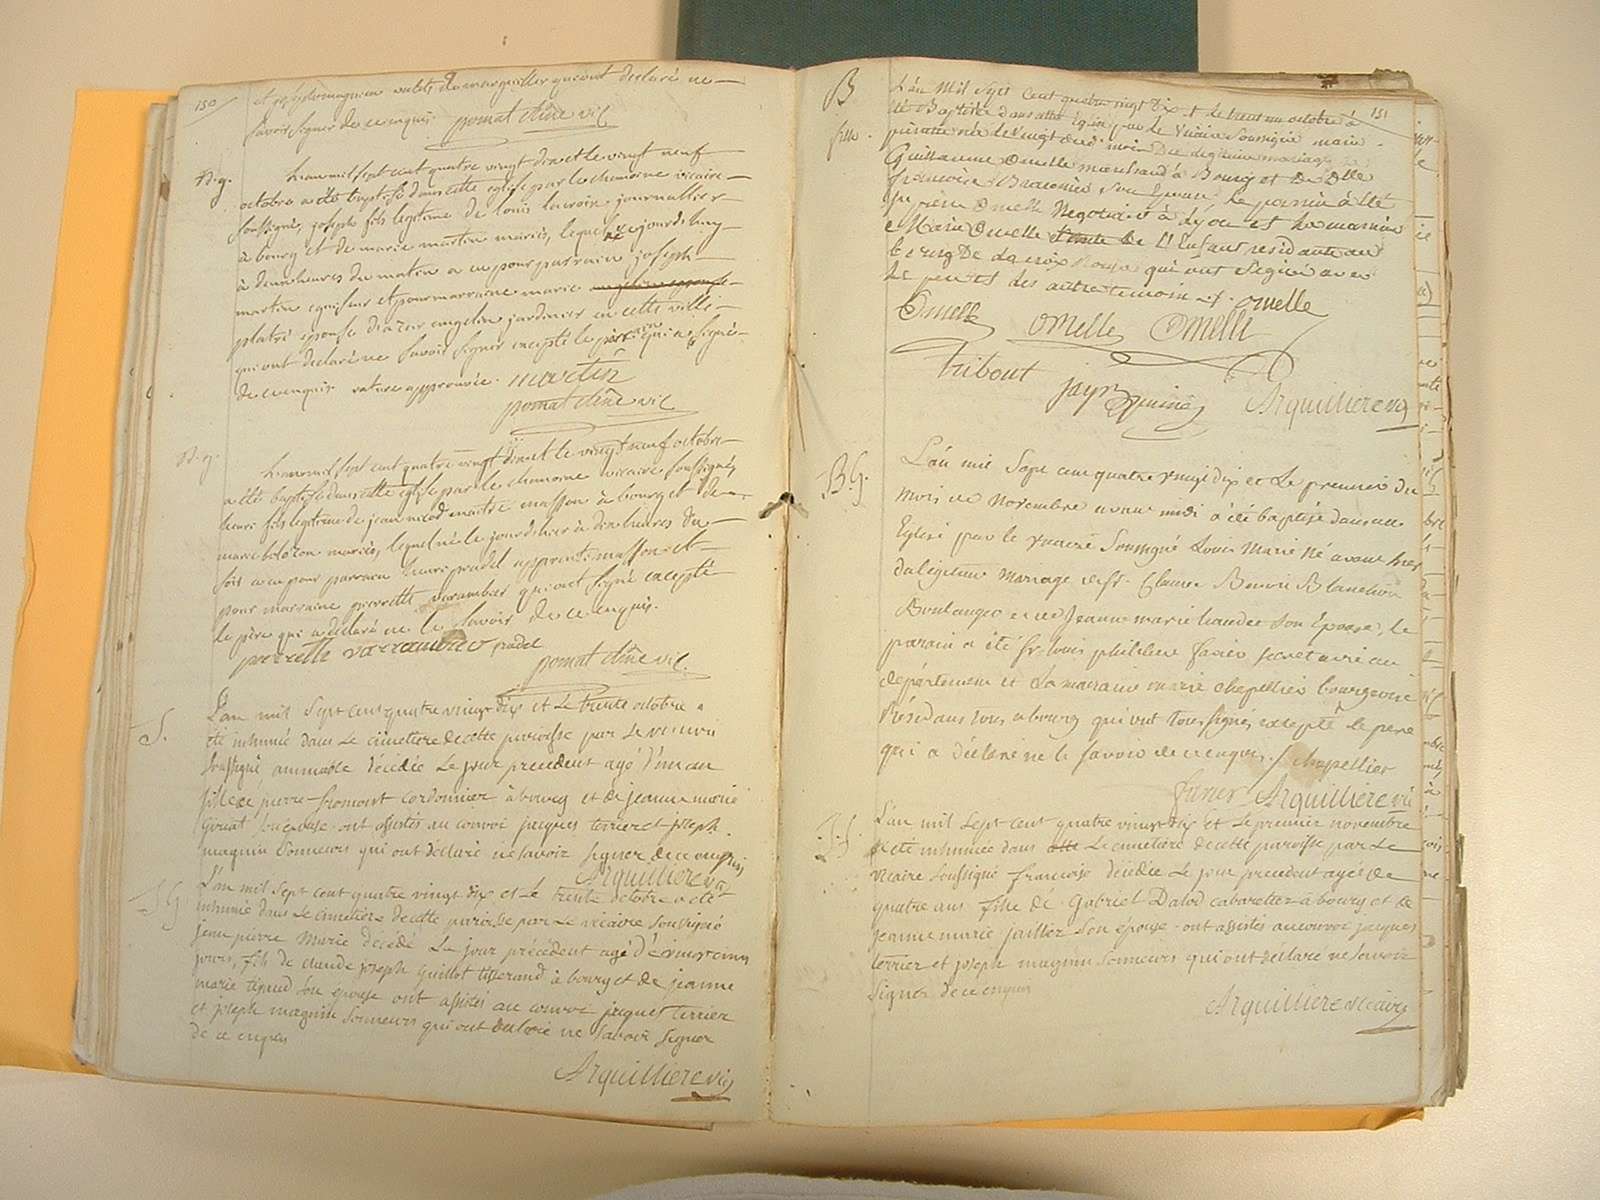 150
et joseph magnien valets de marguillier qui ont declaré ne
savoir signer de ce enquis. pomat chne vic
B. g.
L'an mil sept cent quatre vingt dix et le vingt neuf
octobre a été baptisé dans cette eglise par le chanoine vicaire
soussigné, joseph fils legitime de louis journallier
a bourg et de marie martin mariés, lequel né ce jourd'huy
à deux heures du matin a eu pour parrain joseph
martin et pour marraine marie
platre epouse d'azar angelin jardinier en cette ville
qui ont declaré ne savoir signer excepté le parrain qui a signé
de ce enquis. rature approuvée. martin
pomat chne vic
B. g.
L'an mil sept cent quatre vingt dix et le vingt neuf octobre
a été baptisé dans cette eglise par le chanoine vicaire soussigné,
henri fils legitime de jean nicod maitre masson à bourg et de
marie mariés, lequel né le jour d'hier à dix heures du
soir a eu pour parrain henri pradel apprenti masson et
pour marraine pierrette varambier qui ont signé excepté
le père qui a declaré ne le savoir de ce enquis.
perrette varrambier pradel
pomat chne vic
S.
L'an mil sept cent quatre vingt dix et le trente octobre a
été inhumée dans le cimetiere de cette paroisse par le vicaire
soussigné ammable décédée le jour precedent agé d'un an
fille de pierre fromont cordonnier à bourg et de jeanne marie
son epouse ont assistés au convoi jacques terrier et joseph
magnin sonneurs qui ont déclaré ne savoir signer de ce enquis
Arquilliere vic
S G
L'an mil sept cent quatre vingt dix et le trente octobre a été
inhumé dans le cimetiere de cette paroisse par le vicaire soussigné
jean pierre Marie décédé le jour précédent agé d'environ cinq
jours, fils de claude joseph guillot tisserand à bourg et de jeanne
marie son epouse ont assistés au convoi jaques terrier
et joseph magnin sonneurs qui ont declaré ne savoir signer
de ce enquis
Arquilliere vic
151
B
L'an Mil Sept cent quatre vingt Dix et le trente un octobre à
été Baptisée dans cette Eglise par le vicaire soussigné marie
pierrette née le vingt du mois Du legitime mariage de
Guillaume Omelle marchand à Bourg et de Delle
francoise son Epouse le parrin a été
pierre Omelle Negotiant à Lyon et la marrine
Marie Omelle tante de L'Enfant residante au
bourg De la croix rousse qui ont signé avec
le pere et des autre temoin. Omelle
Omelle Omelle Omelle
tribout jayr Arquilliere vic
B. G.
L'an mil sept cent quatre vingt dix et Le premier du
mois de Novembre avant midi a été baptisé dans cette
Eglise par le vicaire soussigné Louis Marie Né avant hier
du legitime mariage de sr. Claude Benoit Blanchon
Boulanger et de jeanne marie son Epouse, le
parrain a été sr louis philibert favier secretaire au
département et la marraine marie chapellier bourgeoise
Résidans tous a bourg qui ont tous signés excepté le pere
qui a déclaré ne le savoir de ce enquis. chapellier
favier Arquilliere vic
L'an mil sept cent quatre vingt dix et le premier novembre
a été inhumée dans le cimetiere decette paroisse par Le
vicaire soussigné francoise décédée le jour precedent agée de
quatre ans fille de Gabriel Dalod cabaretier à bourg et de
jeanne marie jaillet son épouse ont assistés au convoi jacques
terrier et joseph magnin sonneurs qui ont déclaré ne savoir
signer de ce enquis
Arquilliere vicaire